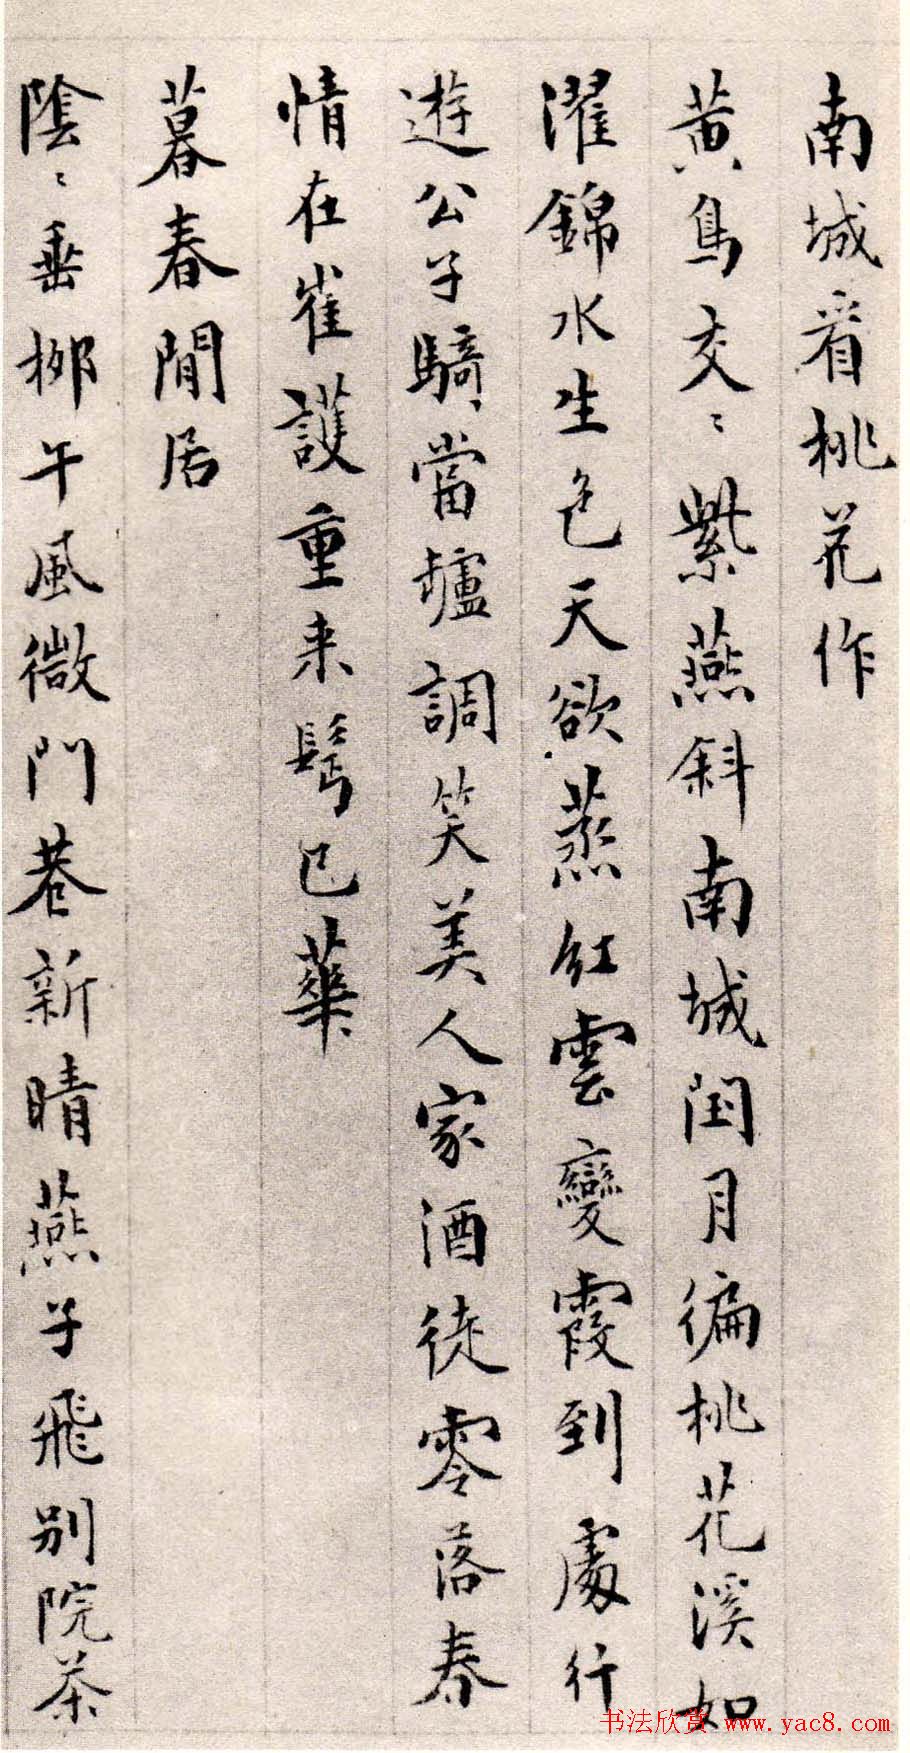 南城看桃花作
黄鳥交〻紫燕斜南城閏月徧桃花溪如
濯錦水生色天欲蒸紅雲變霞到處行
遊公子騎當壚調笑美人家酒徒零落春
情在崔護重来鬂已華
暮春閒居
陰〻垂栁午風微門巷新晴燕子飛別院茶
书法欣赏 www.yac8.com